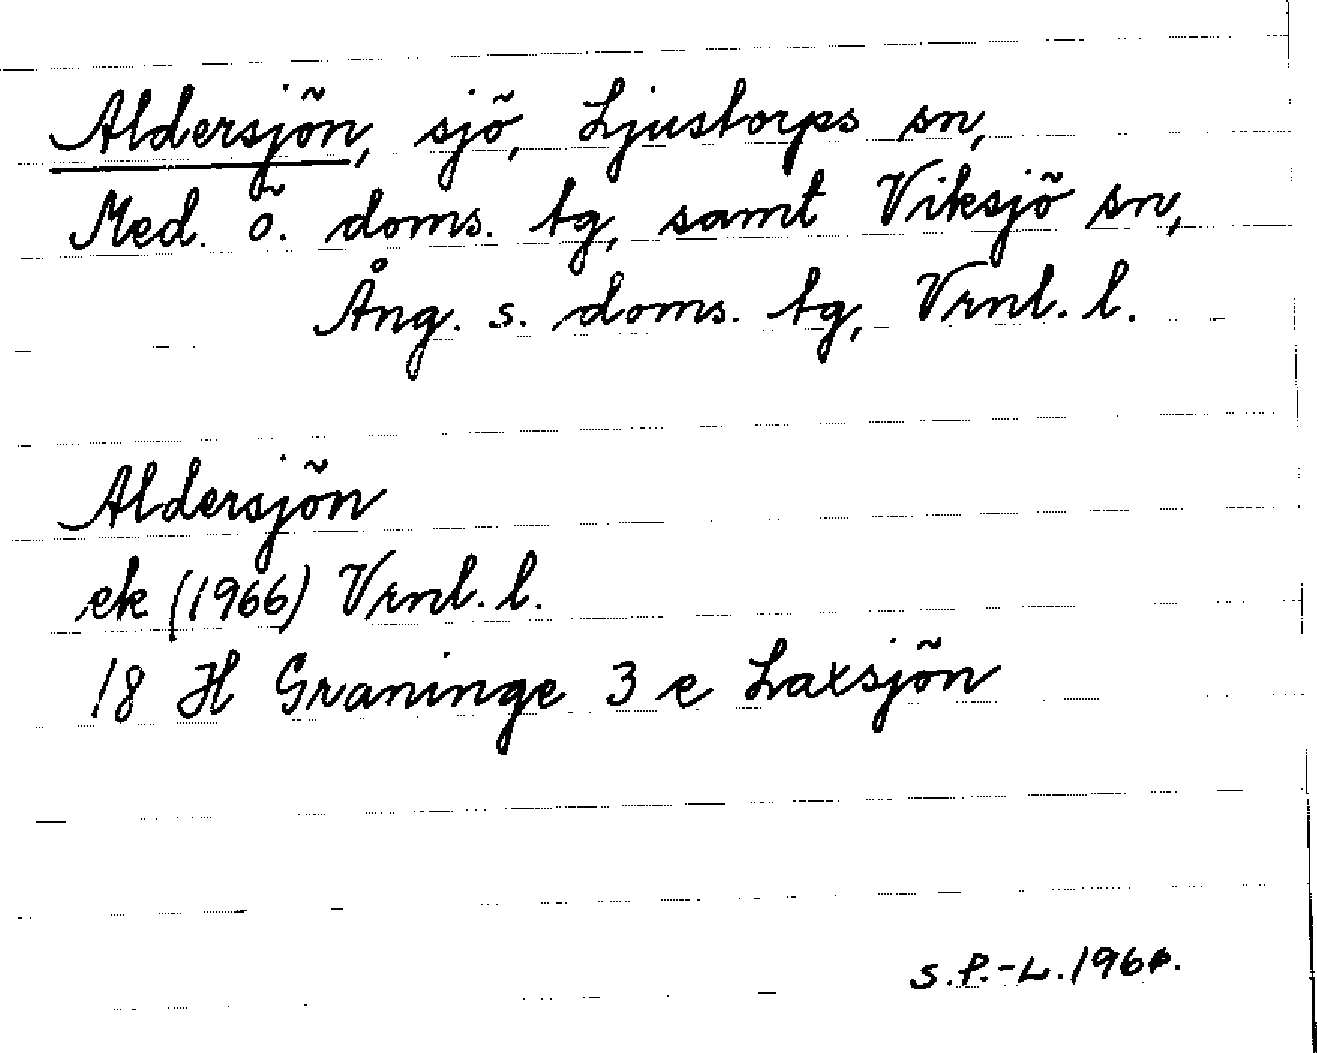 Aldersjön, sjö, Ljustorps sn,
Med. ö. doms. tg, samt Viksjö sn,
Ång. s. doms. tg, Vrnl. l.
Aldersjön
ek (1966) Vrnl. l.
18 H Graninge 3 e Laxsjön
S.P.-L. 1966.